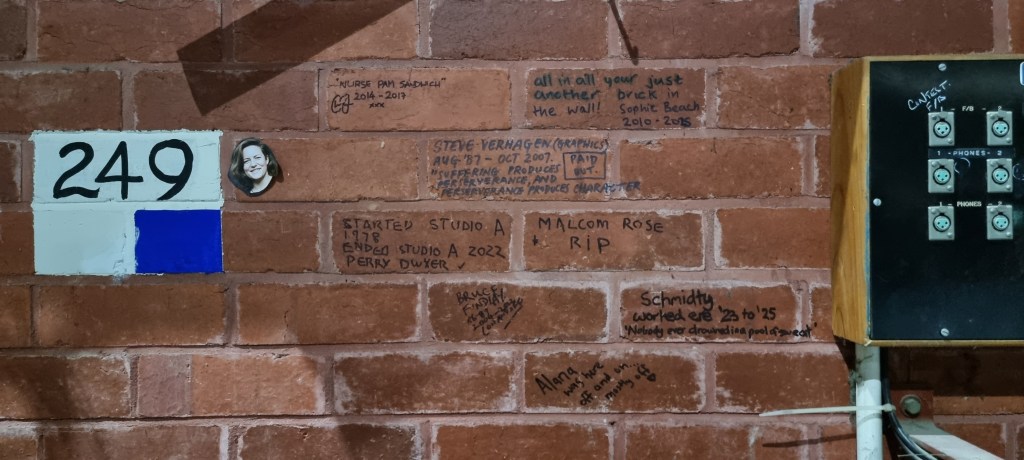 "NURSE PAM SANDWICH"
2014 - 2017
xxx
all in all your just
another brick in
the wall! Sophie Beach
2010 - 2025
249
STEVE VERHAGEN (GRAPHICS)
AUG '87 - OCT 2007.
"SUFFERING PRODUCES
PERSERVERANCE AND
PERSERVERANCE PRODUCES CHARACTER
PAID
OUT.
STARTED STUDIO A
1978
ENDED STUDIO A 2022
PERRY DWYER
MALCOM ROSE
RIP
BRUCE
FINDLAY
Schmidty
worked ere '23 to '25
'Nobody ever drowned in a pool of sweat'
Alana
was here
off and on
mostly off
F/B
1 - F/B - 2
1 - PHONES - 2
1 - PHONES - 2